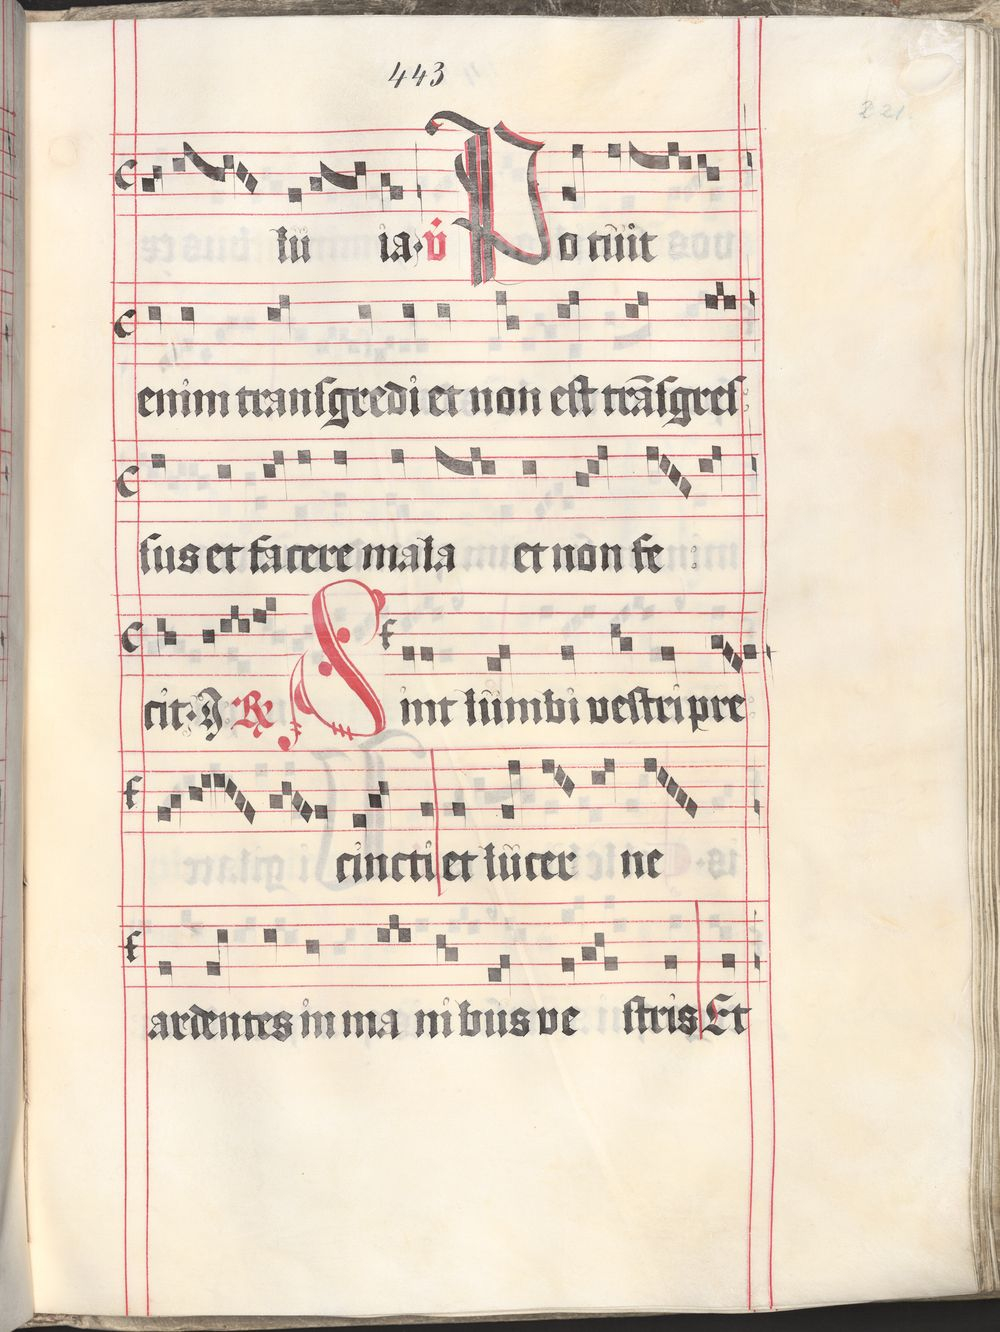 443
221
lu ia· v̇ Potuit
enim tranſgredi et non eſt trāſgreſ
ſus et facere mala et non fe
cit· I R Sint lumbi veſtri pre
cincti et lucer ne
ardentes in ma nibus ve ſtris Et